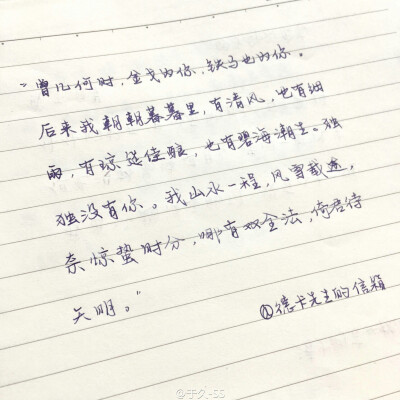 “曾几何时，金戈的你，铁马也的你。
后来我朝朝暮暮里，有清风，也有细
雨，有琼筵佳酿，也有碧海潮生。独
独没有你。我山水一程，风雪载途，
奈惊蛰时分，哪有双全法，倚君待
天明。”
@德卡先生的信箱
@于久-55